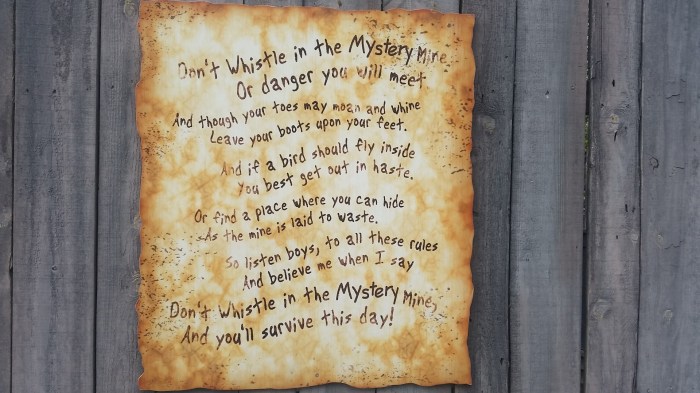 Don't Whistle in the Mystery Mine
Or danger you will meet
And though your toes may moan and whine
Leave your boots upon your feet.
And if a bird should fly inside
You best get out in haste.
Or find a place where you can hide
As the mine is laid to waste.
So listen boys, to all these rules
And believe me when I say
Don't Whistle in the Mystery Mine,
And you'll survive this day!